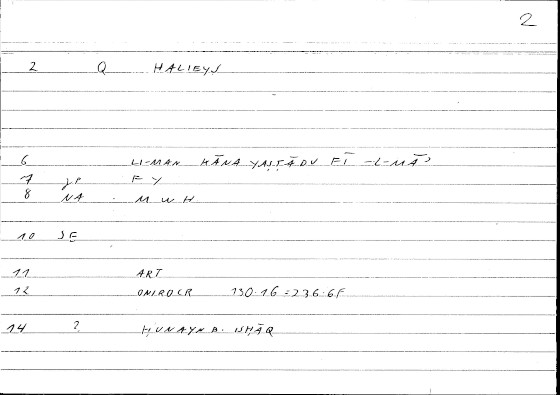 2
2 Q HALIEYS
6 LI-MAN KĀNA YAṢṬĀDU FĪ -L-MĀʾ
7 JP F Y
8 NA M W H
10 SE
11 ART
12 ONIROCR 130.16 = 236.6F
14 ? ḤUNAYN B. ISḤĀQ